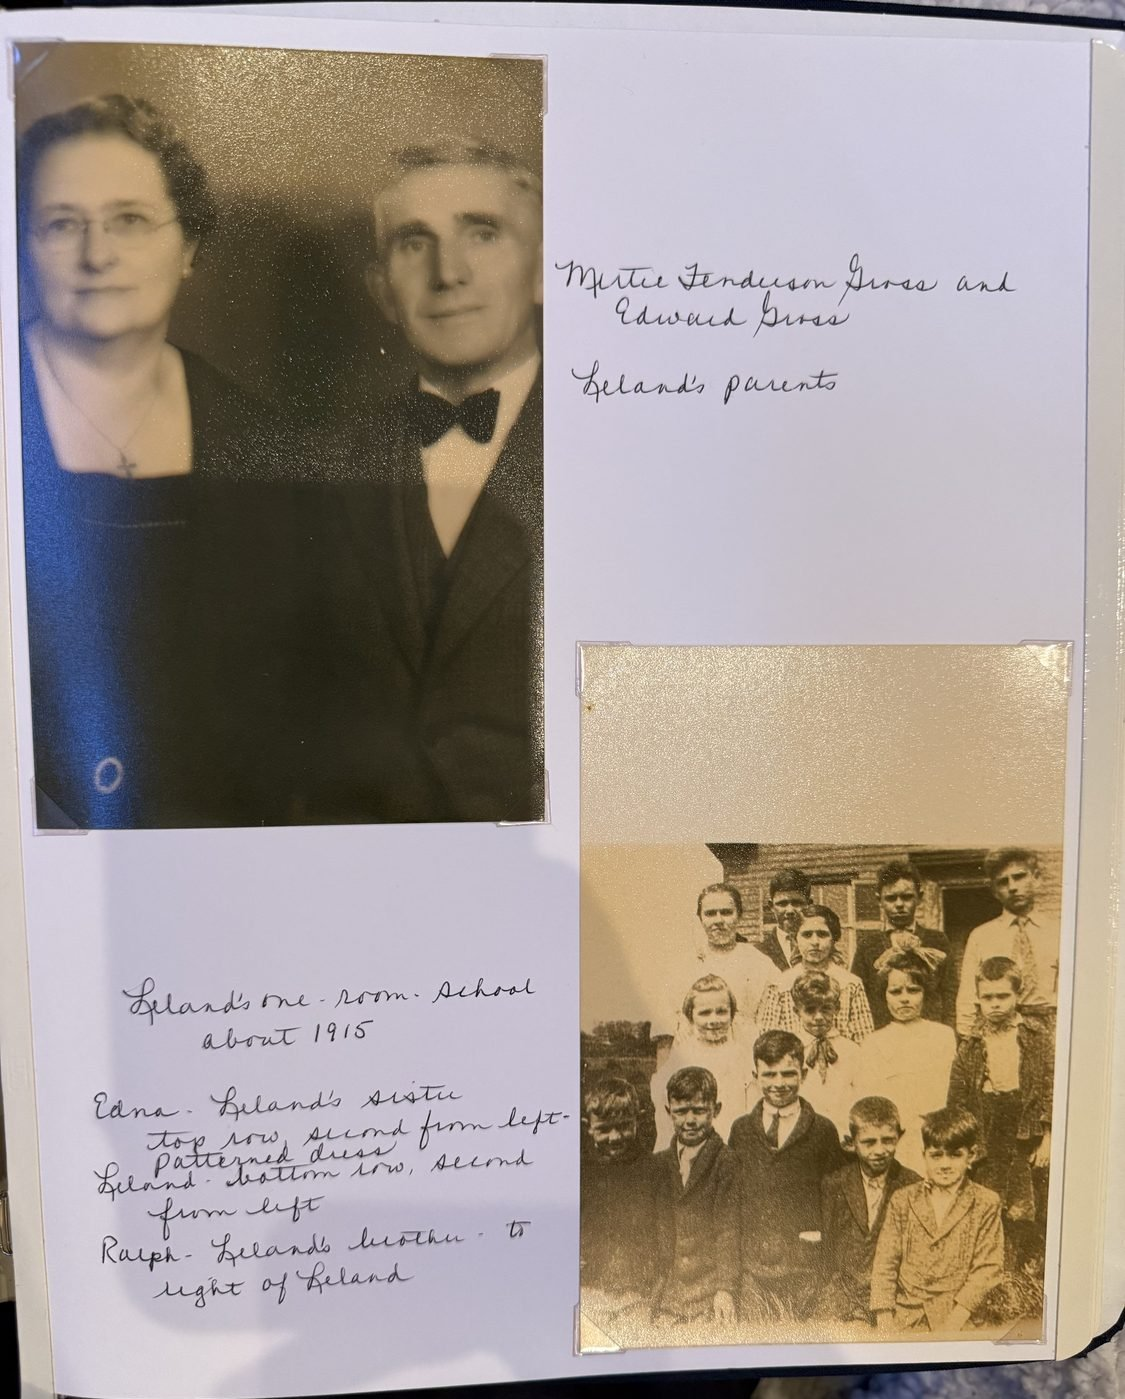 Mertie Fenderson Gross and
Edward Gross
Leland's parents
Leland's one-room-school
about 1915
Edna - Leland's sister
top row, second from left -
patterned dress
Leland - bottom row, second
from left
Ralph - Leland's brother - to
right of Leland